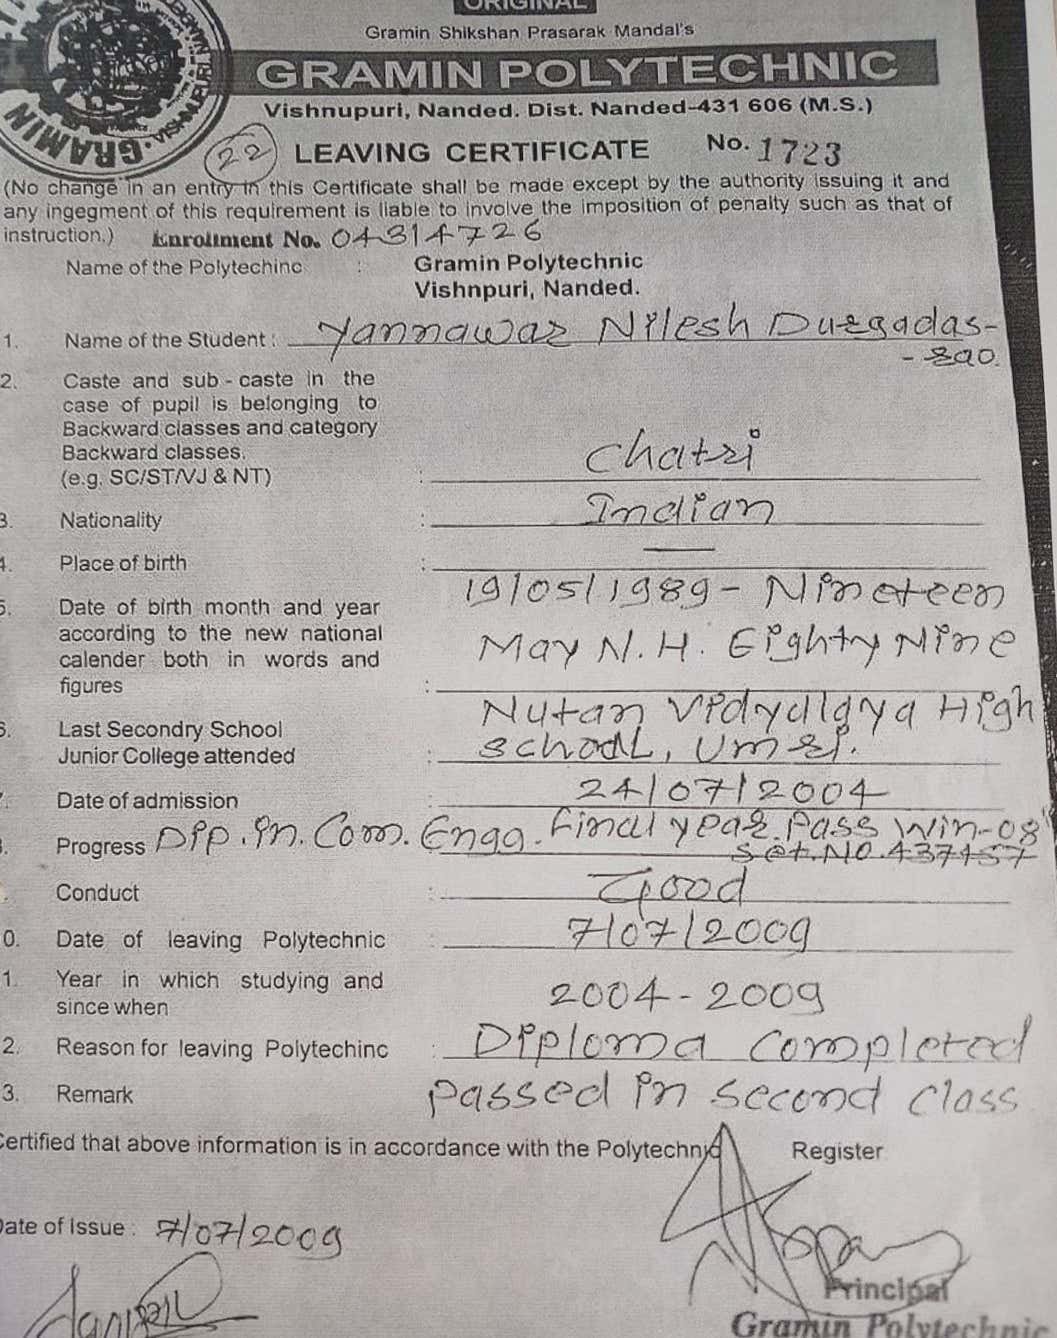 ORIGINAL
Gramin Shikshan Prasarak Mandal's
GRAMIN POLYTECHNIC
Vishnupuri, Nanded. Dist. Nanded-431 606 (M.S.)
22 LEAVING CERTIFICATE No. 1723
(No change in an entry in this Certificate shall be made except by the authority issuing it and
any ingegment of this requirement is liable to involve the imposition of penalty such as that of
instruction.) Enrollment No. 04314726
Name of the Polytechinc : Gramin Polytechnic
Vishnpuri, Nanded.
1. Name of the Student : Yannawar Nilesh Durgadas-
-rao.
2. Caste and sub - caste in the
case of pupil is belonging to
Backward classes and category
Backward classes.
(e.g. SC/ST/VJ & NT) : Chatri
3. Nationality : Indian
4. Place of birth : —
5. Date of birth month and year 19/05/1989 - Nineteen
according to the new national May N.H. Eighty Nine
calender both in words and
figures :
6. Last Secondry School Nutan Vidyalaya High
Junior College attended : School, Umri.
Date of admission : 24/07/2004
Progress Dip. in. Com. Engg. Final year. Pass Win-08
Set.No.437457
Conduct : Good
0. Date of leaving Polytechnic : 7/07/2009
1. Year in which studying and
since when 2004-2009
2. Reason for leaving Polytechinc : Diploma Completed
3. Remark Passed in Second Class
Certified that above information is in accordance with the Polytechnic Register
Date of Issue : 7/07/2009
Principal
Gramin Polytechnic